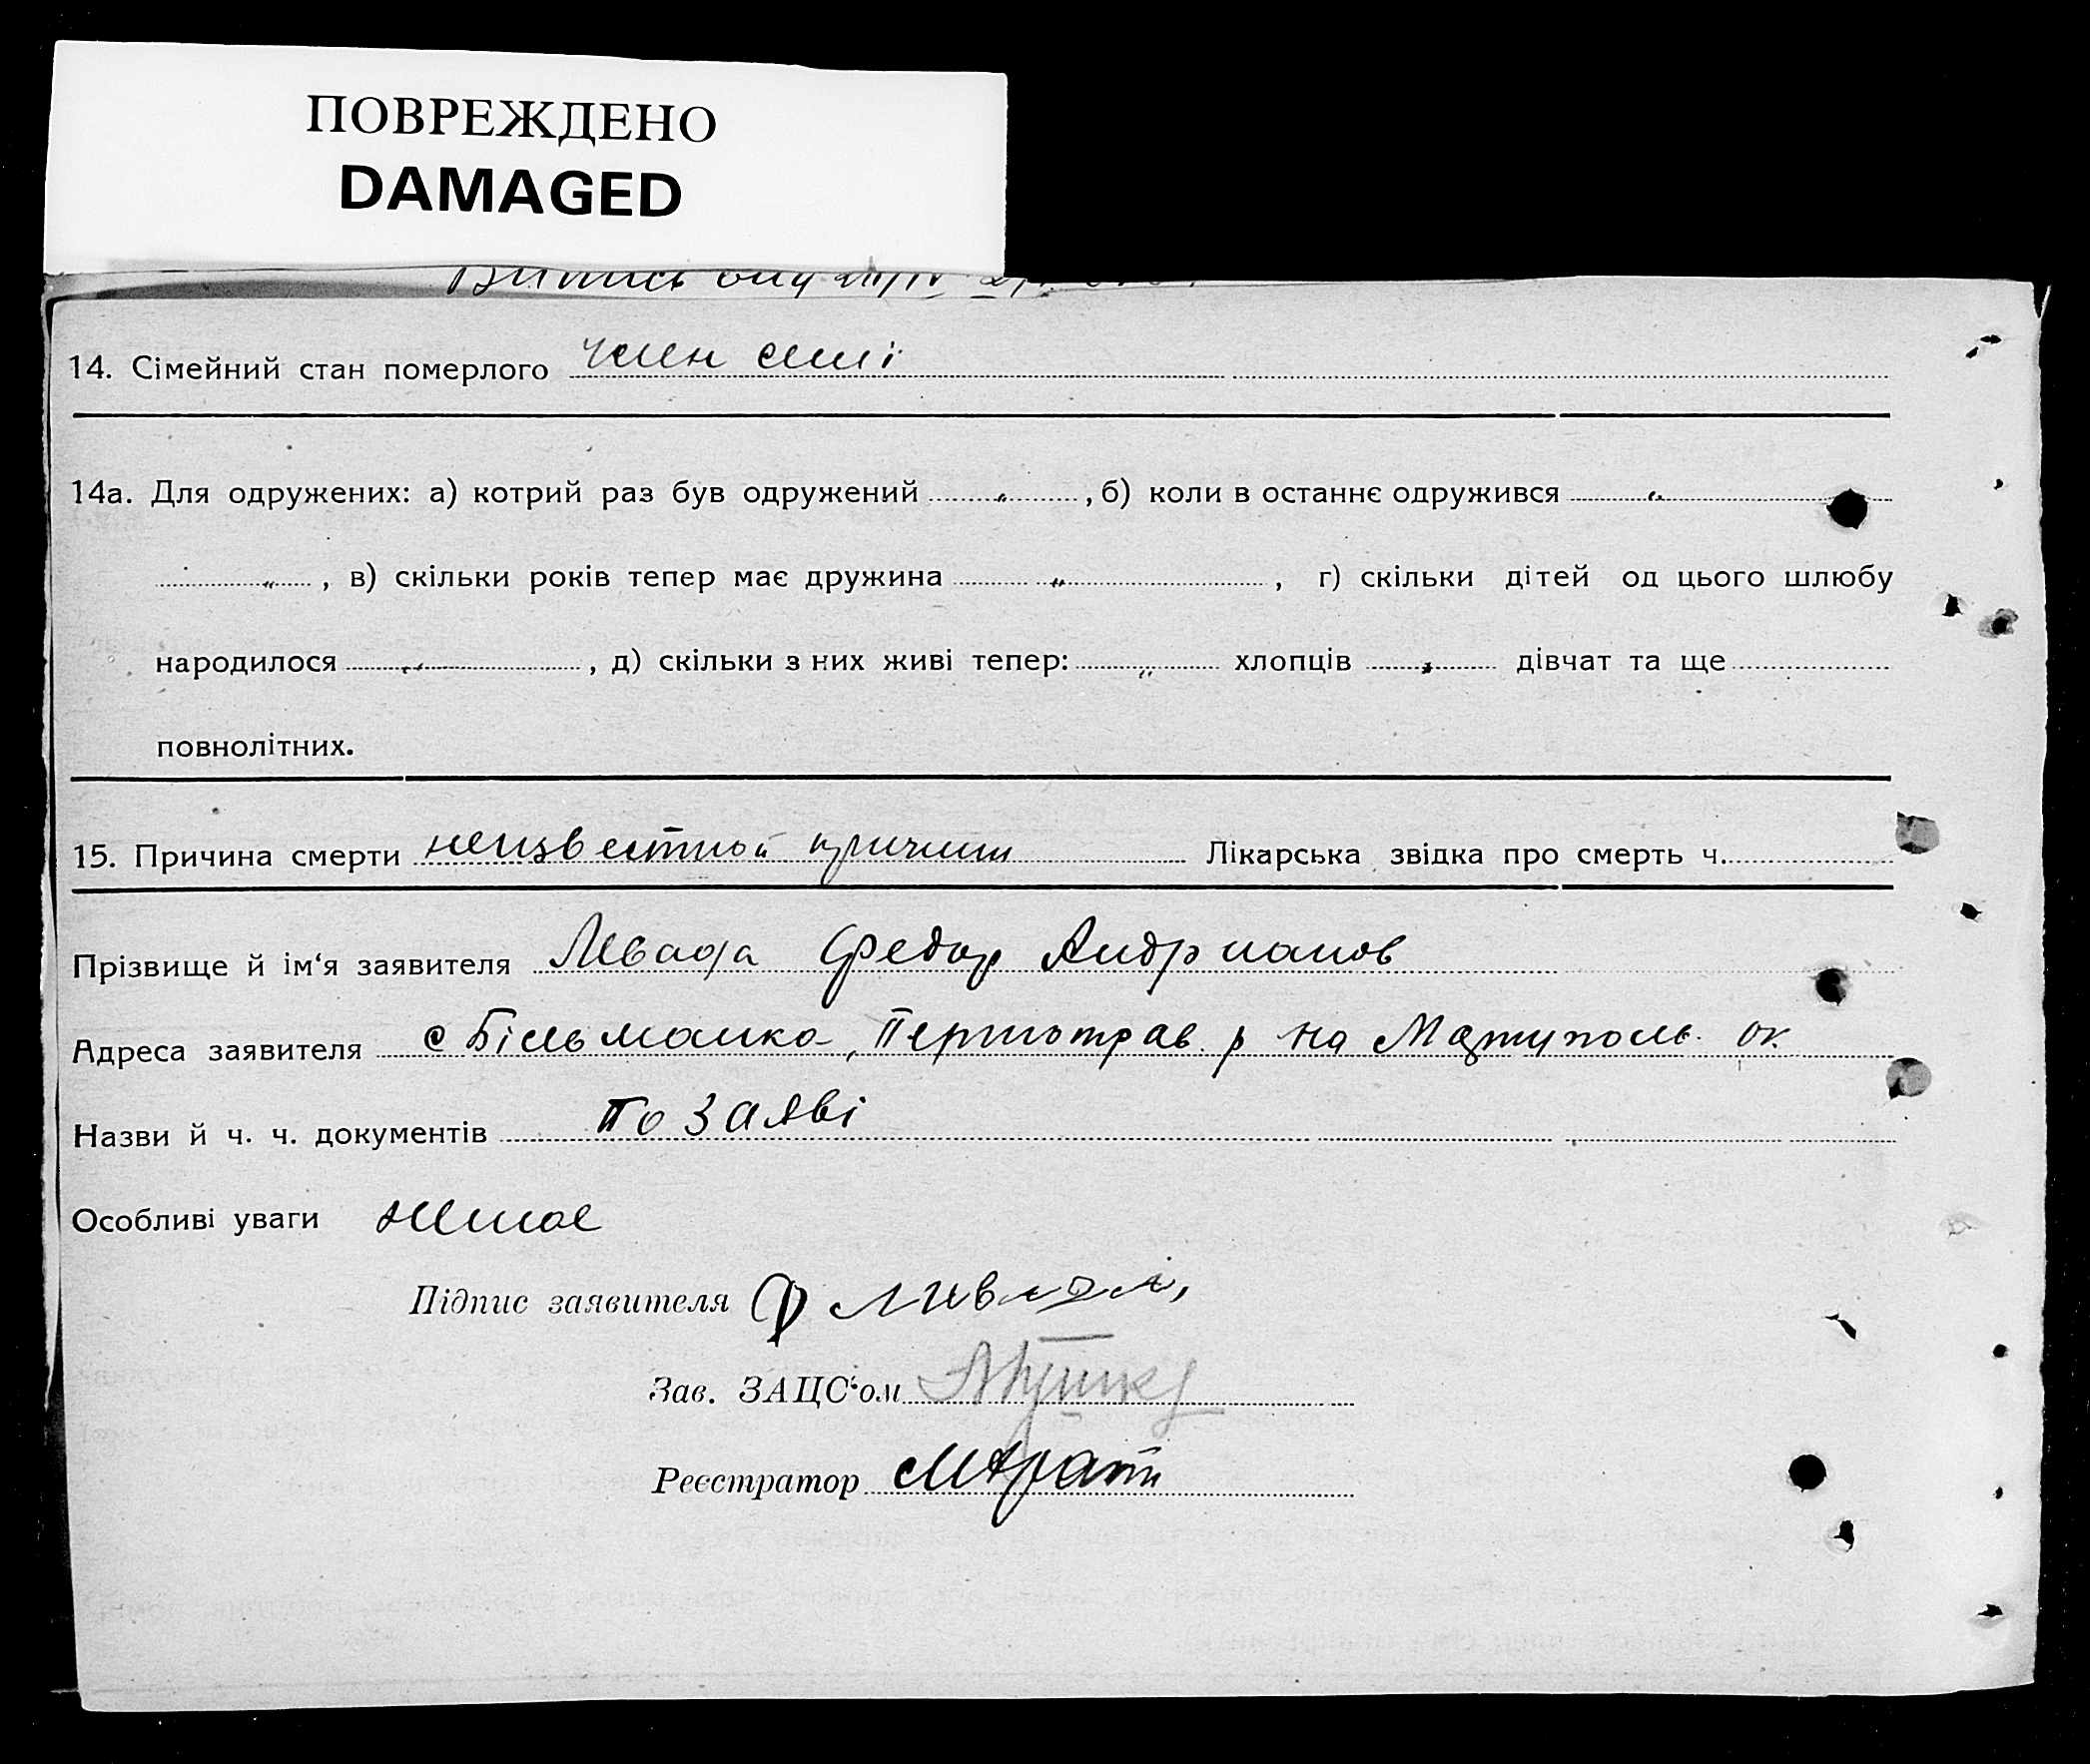 ПОВРЕЖДЕНО
DAMAGED
14. Сімейний стан померлого член сімі
14а. Для одружених: а) котрий раз був одружений „ , б) коли в останнє одружився „
„ , в) скільки років тепер має дружина „ , г) скільки дітей од цього шлюбу
народилося „ , д) скільки з них живі тепер: „ хлопців „ дівчат та ще
повнолітних.
15. Причина смерти неизвестной причини Лікарська звідка про смерть ч.
Прізвище й ім‘я заявителя Левада Федор Андрианов
Адреса заявителя с Більманка, Першотрав. р на Маріуполь. ок.
Назви й ч. ч. документів по заяві
Особливі уваги немає
Підпис заявителя Ф Ливада
Зав. ЗАЦС‘ом
Реєстратор